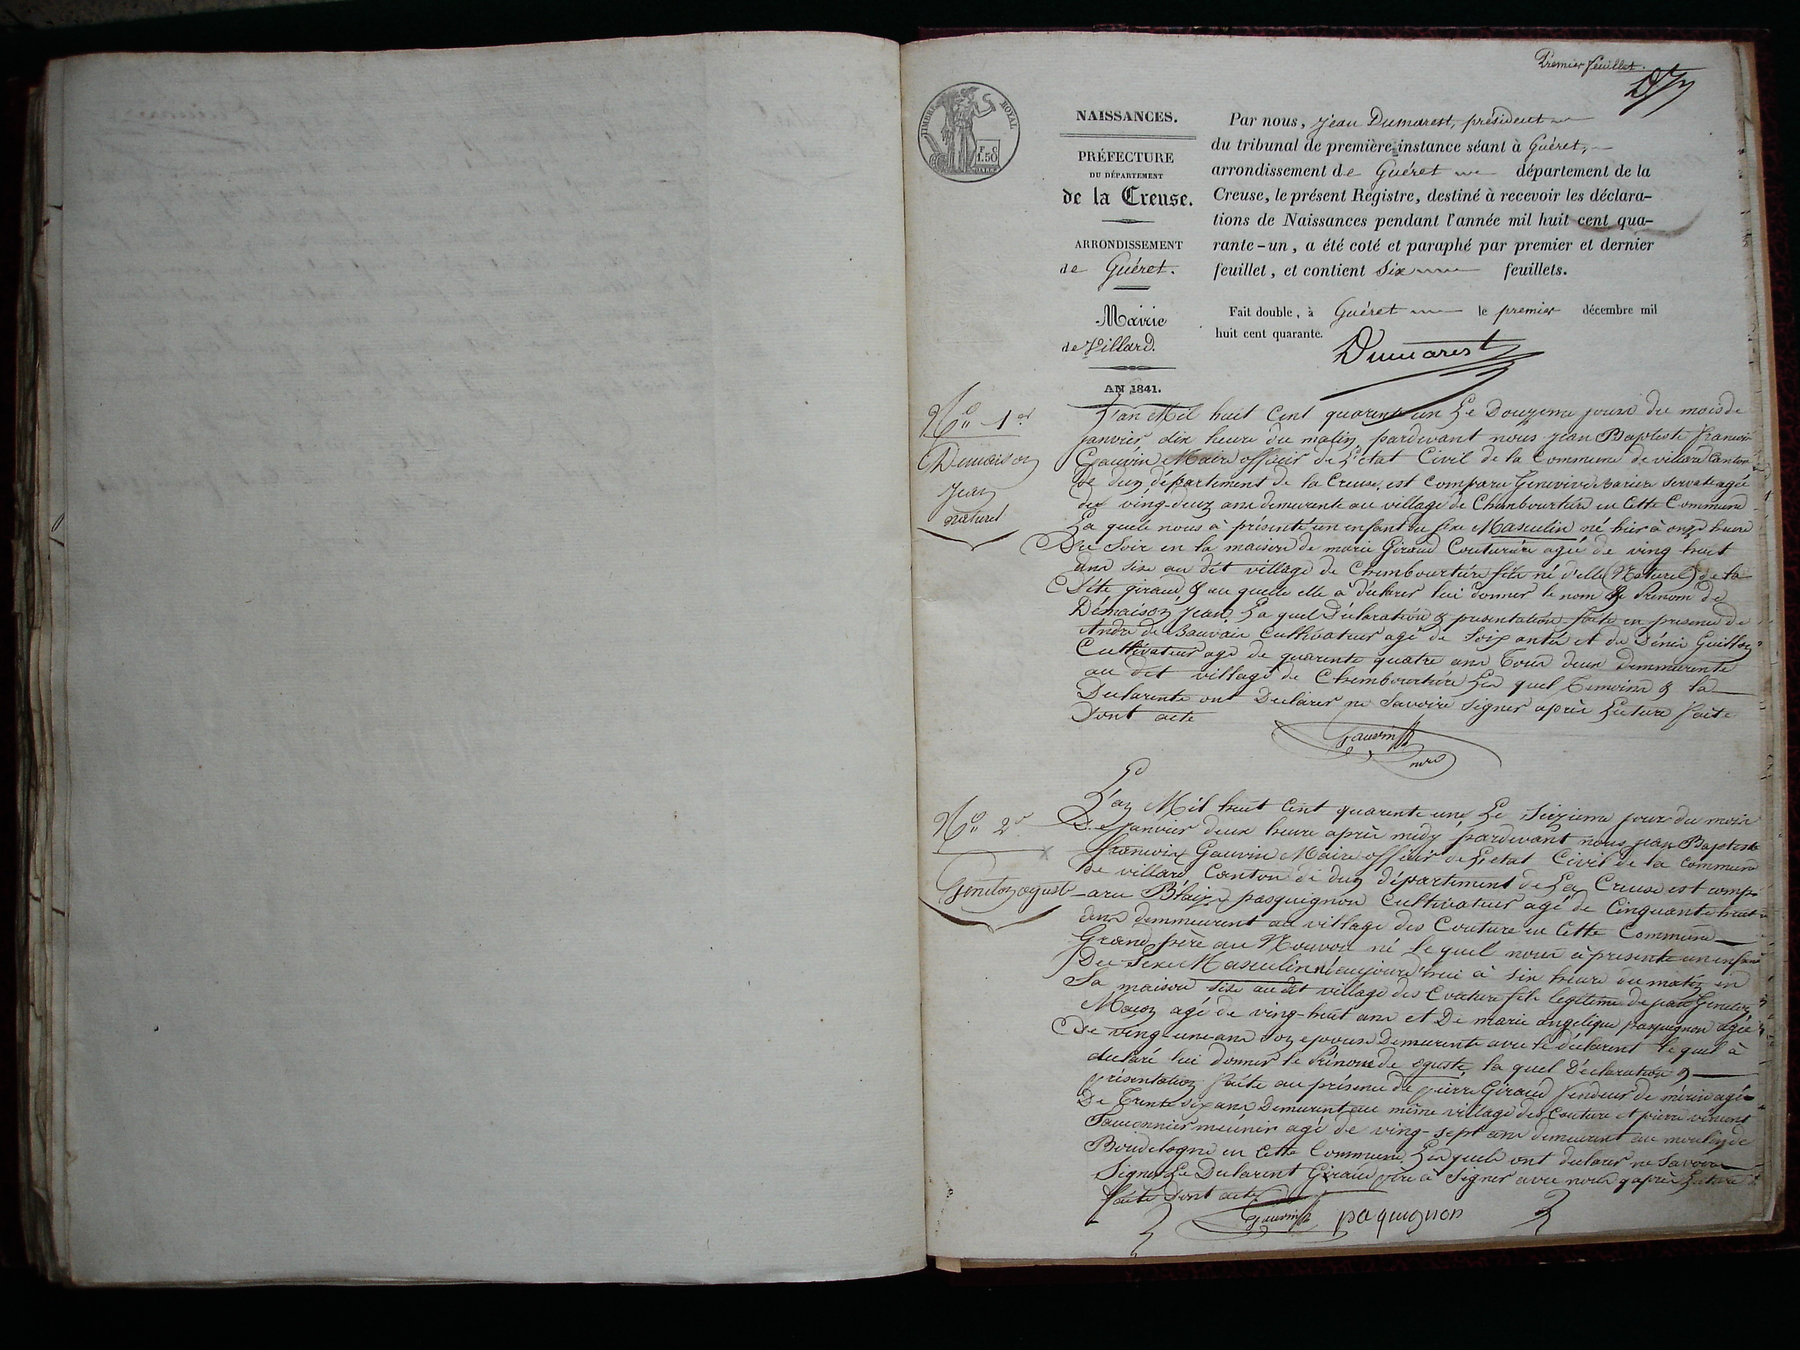 Premier feuillet.
TIMBRE ROYAL
1.50
NAISSANCES.
PRÉFECTURE
DU DÉPARTEMENT
de la Creuse.
ARRONDISSEMENT
de Guéret.
Mairie
de Villard.
AN 1841.
Par nous, Jean Dumarest, président
du tribunal de première instance séant à Guéret,
arrondissement de Guéret département de la
Creuse, le présent Régistre, destiné à recevoir les déclara-
tions de Naissances pendant l'année mil huit cent qua-
rante-un, a été coté et paraphé par premier et dernier
feuillet, et contient six feuillets.
Fait double, à Guéret le premier décembre mil
huit cent quarante.
Dumarest
No 1er
Demaison
Jean
naturel
L'an Mil huit Cent quarente un Le Douzieme jours du mois de
janvier dix heure du matin, pardevant nous jean Baptiste francois
Gauvin Maire officier de L'etat Civil de la Commune de villard Canton
de dun département de la Creuse, est Comparu Genevive agée
de vingt-deux ans demeurante au village de Chembourtière en Cette Commune
La quele nous à présenté un enfant du sexe Masculin né hier à onze heure
Du Soir en la maison de marie Giraud Couturière agée de ving huit
ans sise au dit village de Chembourtière fils né d'elle (Naturel) de la
Dite giraud, & au quele elle à déclarer lui donner le nom & Prénom de
Démaison, jean. La quel Déclaration & presentation faite en presence de
Andre de Bauvais Cultivateur agé de Soixantes et de Dénis Guillon
Cultivateur agé de quarente quatre ans Tous deux demmeurente
au dit village de Chembourtiére Les quel Temoins & la
Declarente ont Declarer ne Savoire signer après Lecture faite
Dont acte
Gauvin
mre
No 2e
Genilon oguste
L'an Mil huit Cent quarente une Le Sizieme jour du mois
De janvier deux heure après midy pardevant nous jean Baptiste
francoix Gauvin Maire officier de L'etat Civil de la Commune
de villard Canton de dun département de La Creuse est comp-
aru Blaize pasquignon Cultivateur agé de Cinquante huit
ans demmeurent au village des Couture en Cette Commune
Grand père au Nouvou né le quel nous à présente un enfant
Du Sexe Masculin né aujourd'hui à six heure du matin en
Sa maison sise au dit village des Couture fils légitime de Genilon
Maçon agé de ving-huit ans et De marie angelique pasquignon agée
De ving une ans son epouse Demeurente avec le déclarent le quel à
déclaré lui donner le Prénom de oguste la quel Déclaration &
présentation faite au présence de pierre Giraud fendeur de agé
De Trente six ans Demeurent au même village des Couture et pierre vincent
meunir agé de ving-sept ans demeurent au moulin de
en Cette Commune Les quels ont declarer ne Savoire
Signer Le Declarent Grand père à Signer avec nous après Lecture
faite Dont acte
Gauvin paquignon